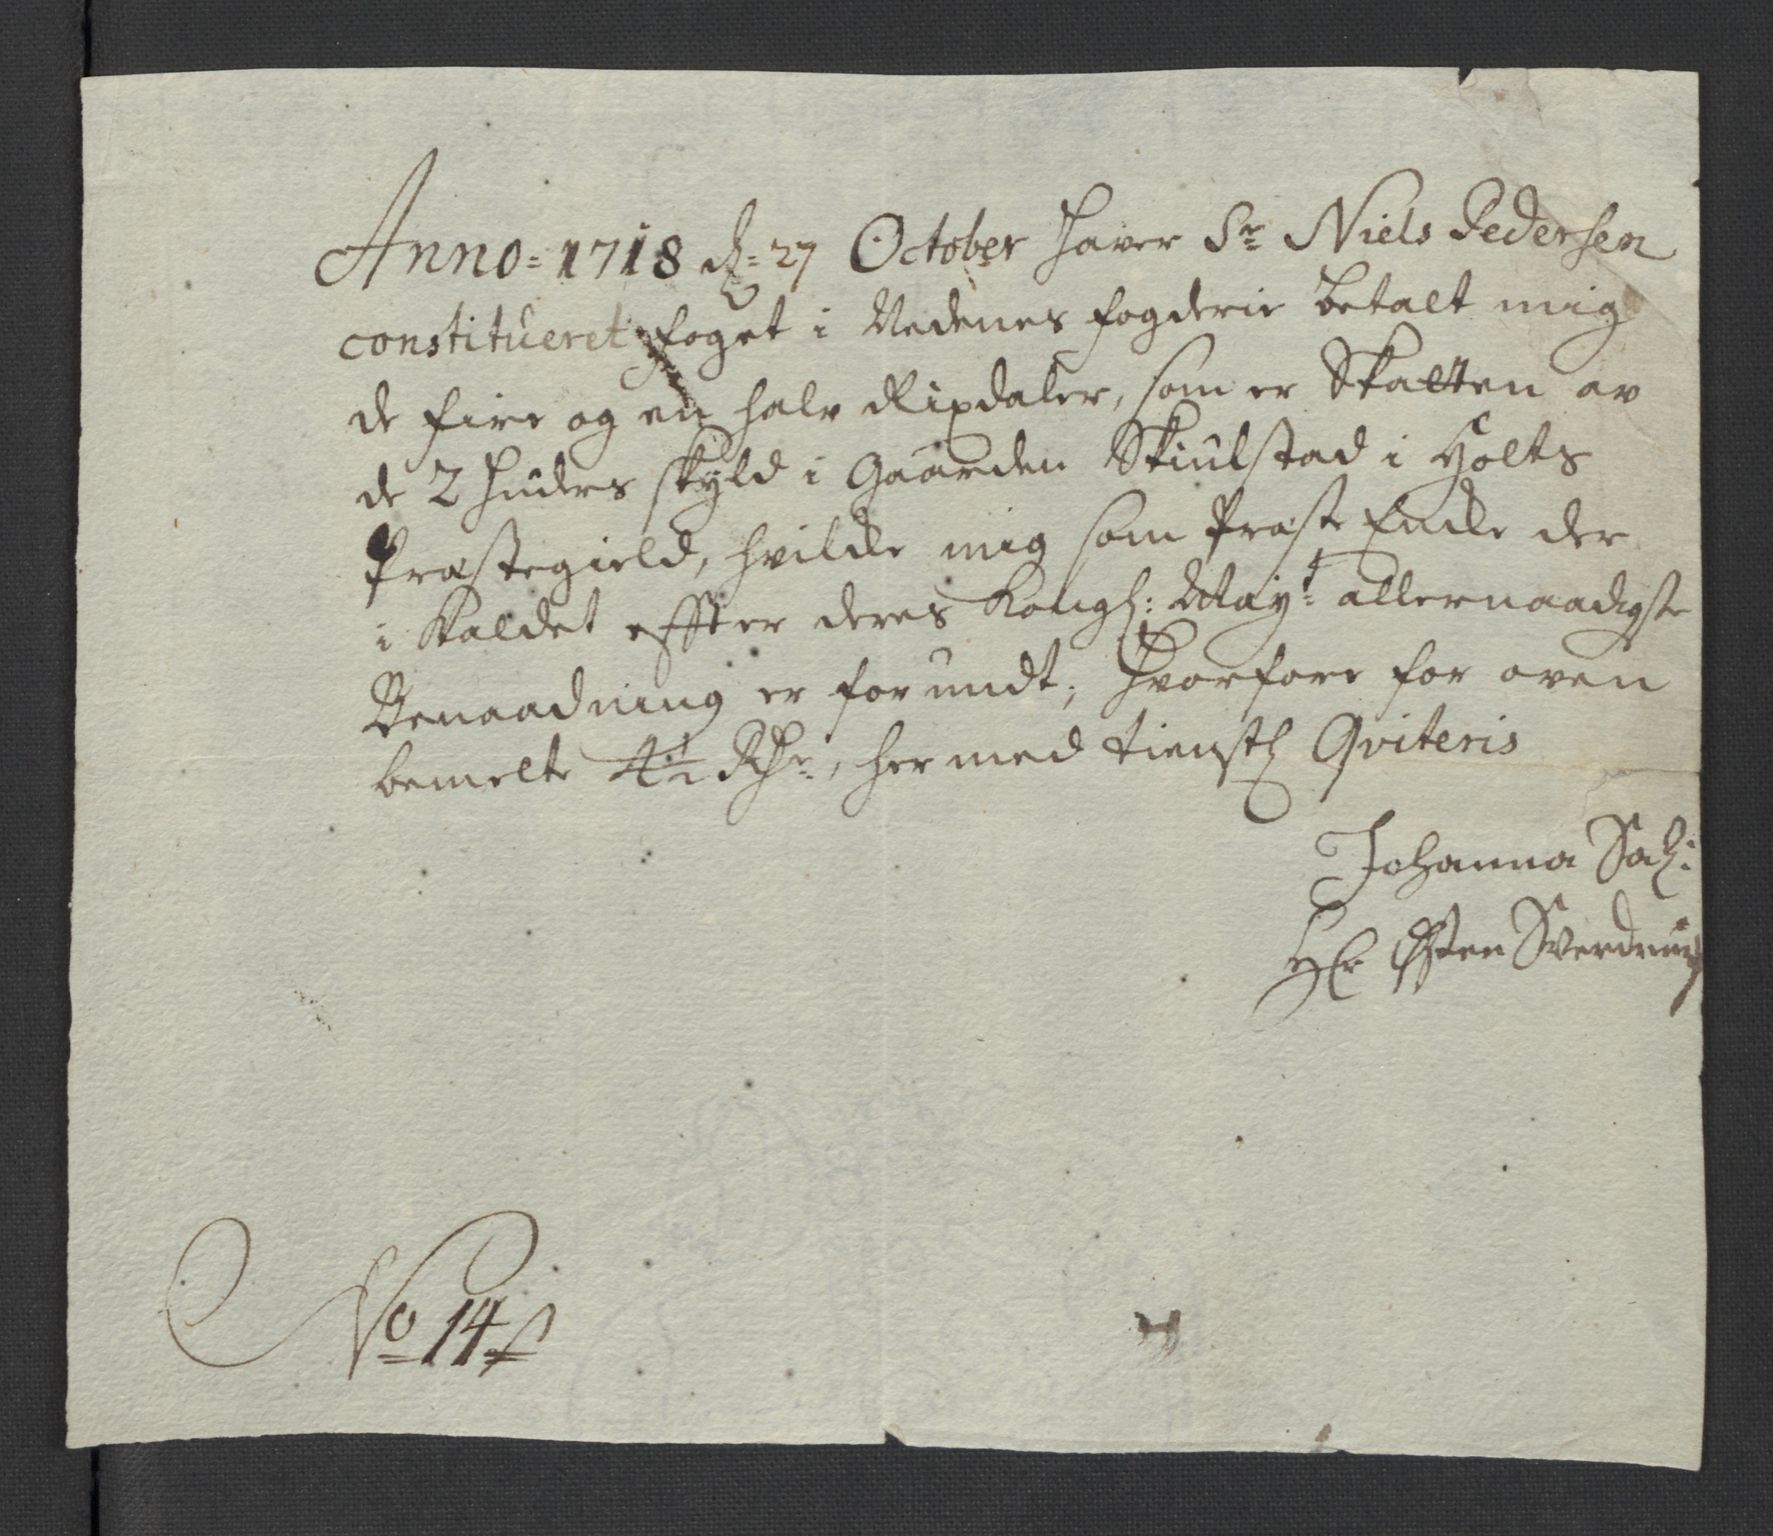 Anno= 1718 d: 27 October haver Sr Niels Pedersen
constitueret foget i Nedenes fogderie betalt mig
de fire og en halv Rixdaler, som er Skatten av
de 2 huders skyld i Gaarden Skiulstad i Holts
Præstegield, hvilcke mig som Præste Encke der
i Kaldet effter deres Kongl: May:t allernaadigste
Benaadning er forundt; hvorfore for oven
bemelte 4½ Rdr, her med tienstl Qviteris
Johanna Sal:
Hr Østen Swerdrup
No 14